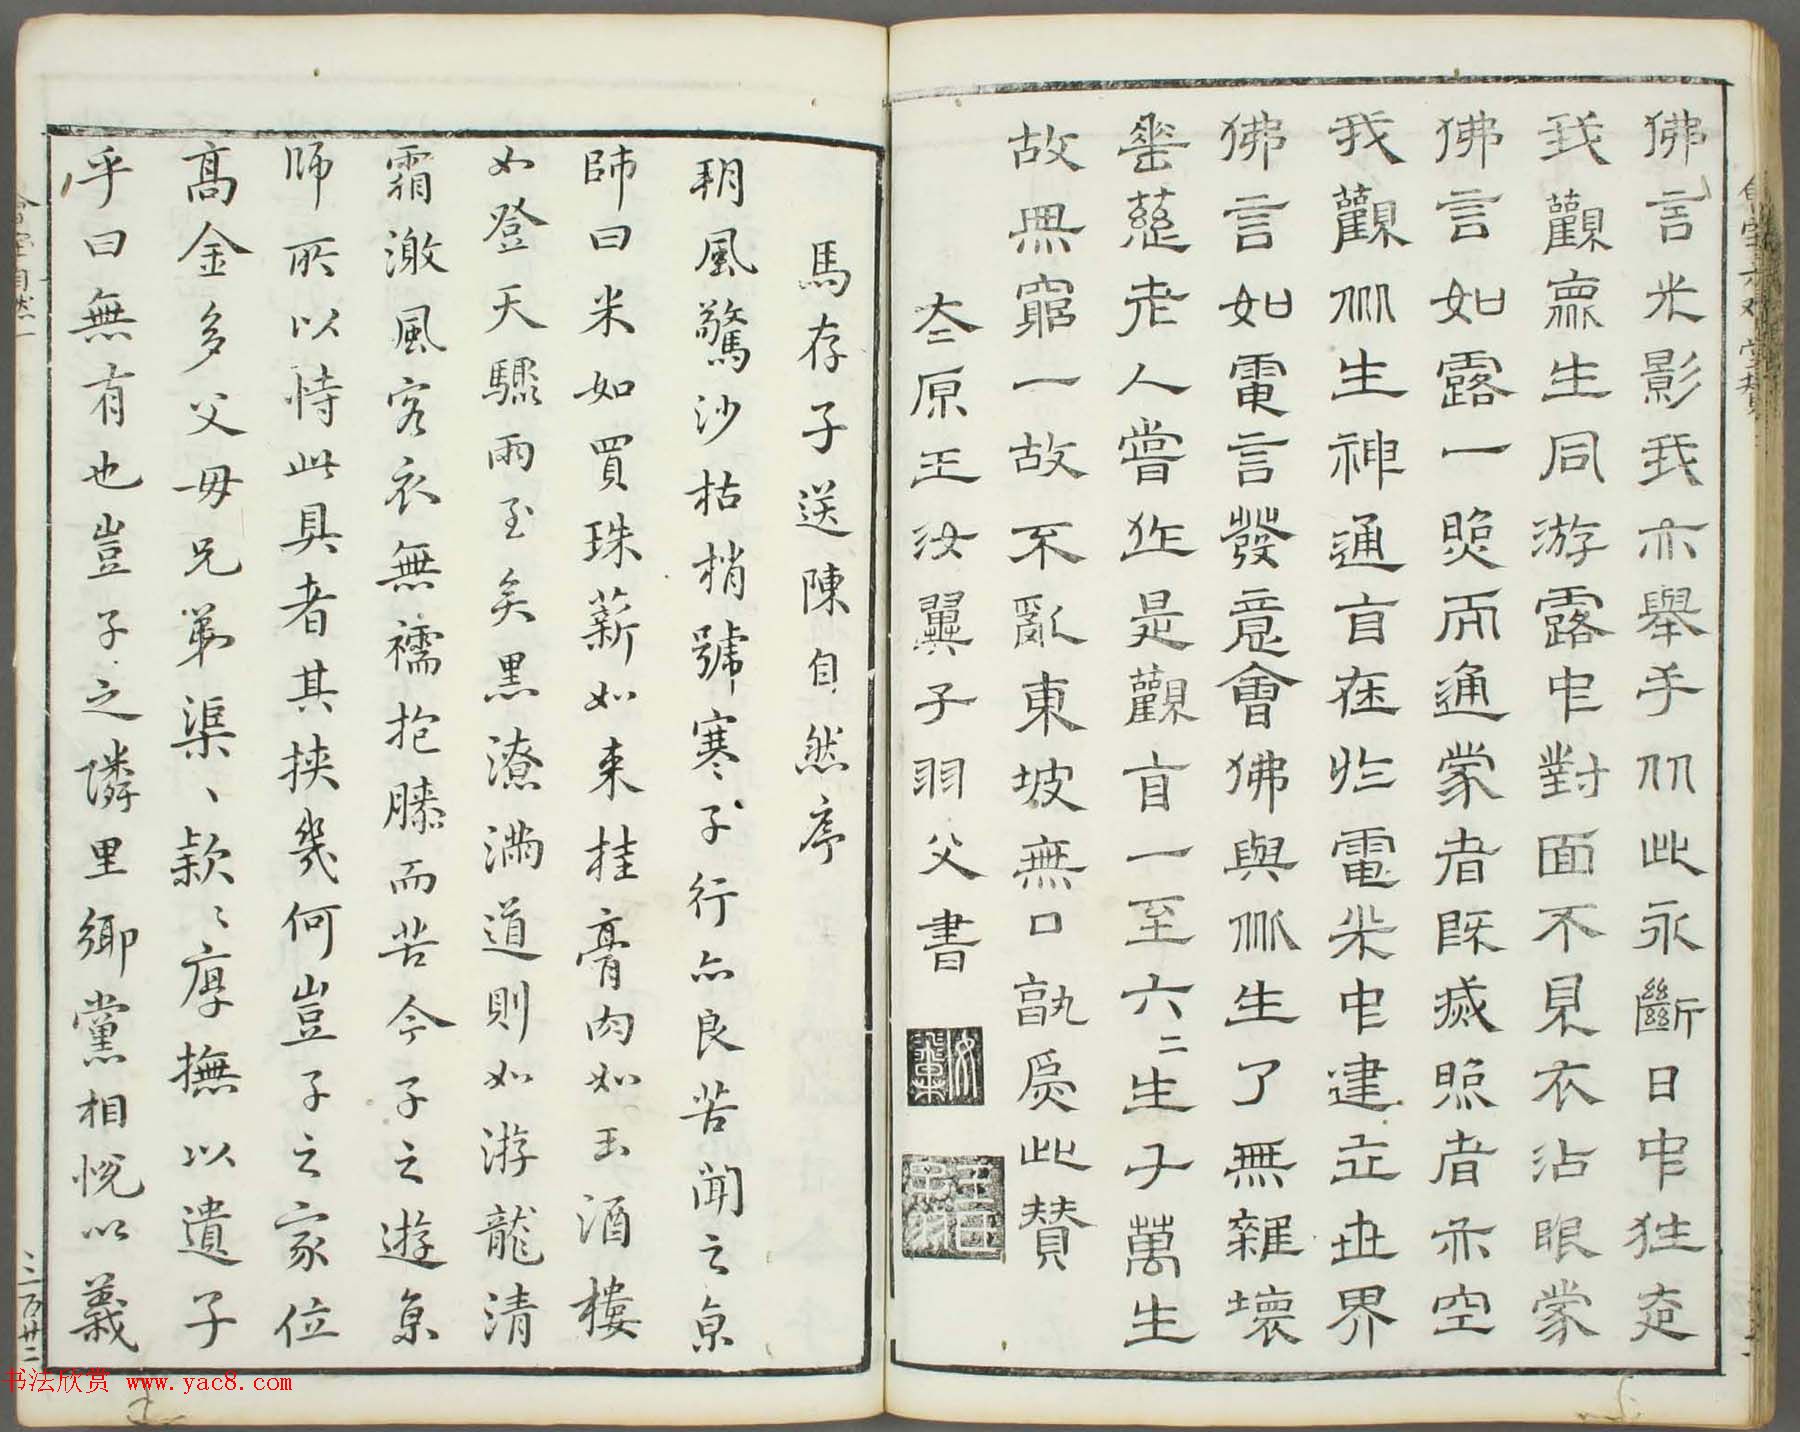 佛言光影我亦舉手從此永斷日中狂走
我觀眾生同游露中對面不見衣沾眼蒙
佛言如露一照而通蒙者既滅照者亦空
我觀眾生神通自在於電光中建立世界
佛言如電言發意會佛與眾生了無雜壞
垂慈老人嘗作是觀自一至六二生子萬生
故無窮一故不亂東坡無口孰爲此贊
太原王汝翼子羽父書
馬存子送陳自然序
朔風驚沙枯梢號寒子行亦良苦聞之京
師曰米如買珠薪如束桂膏肉如玉酒樓
如登天驟雨至矣黑潦滿道則如游龍清
霜激風客衣無襦抱膝而苦今子之遊京
師所以恃此具者其挾幾何豈子之家位
高金多父母兄弟渠渠款款厚撫以遺子
乎曰無有也豈子之隣里鄉黨相悅以義
三百廿二
书法欣赏 www.yac8.com